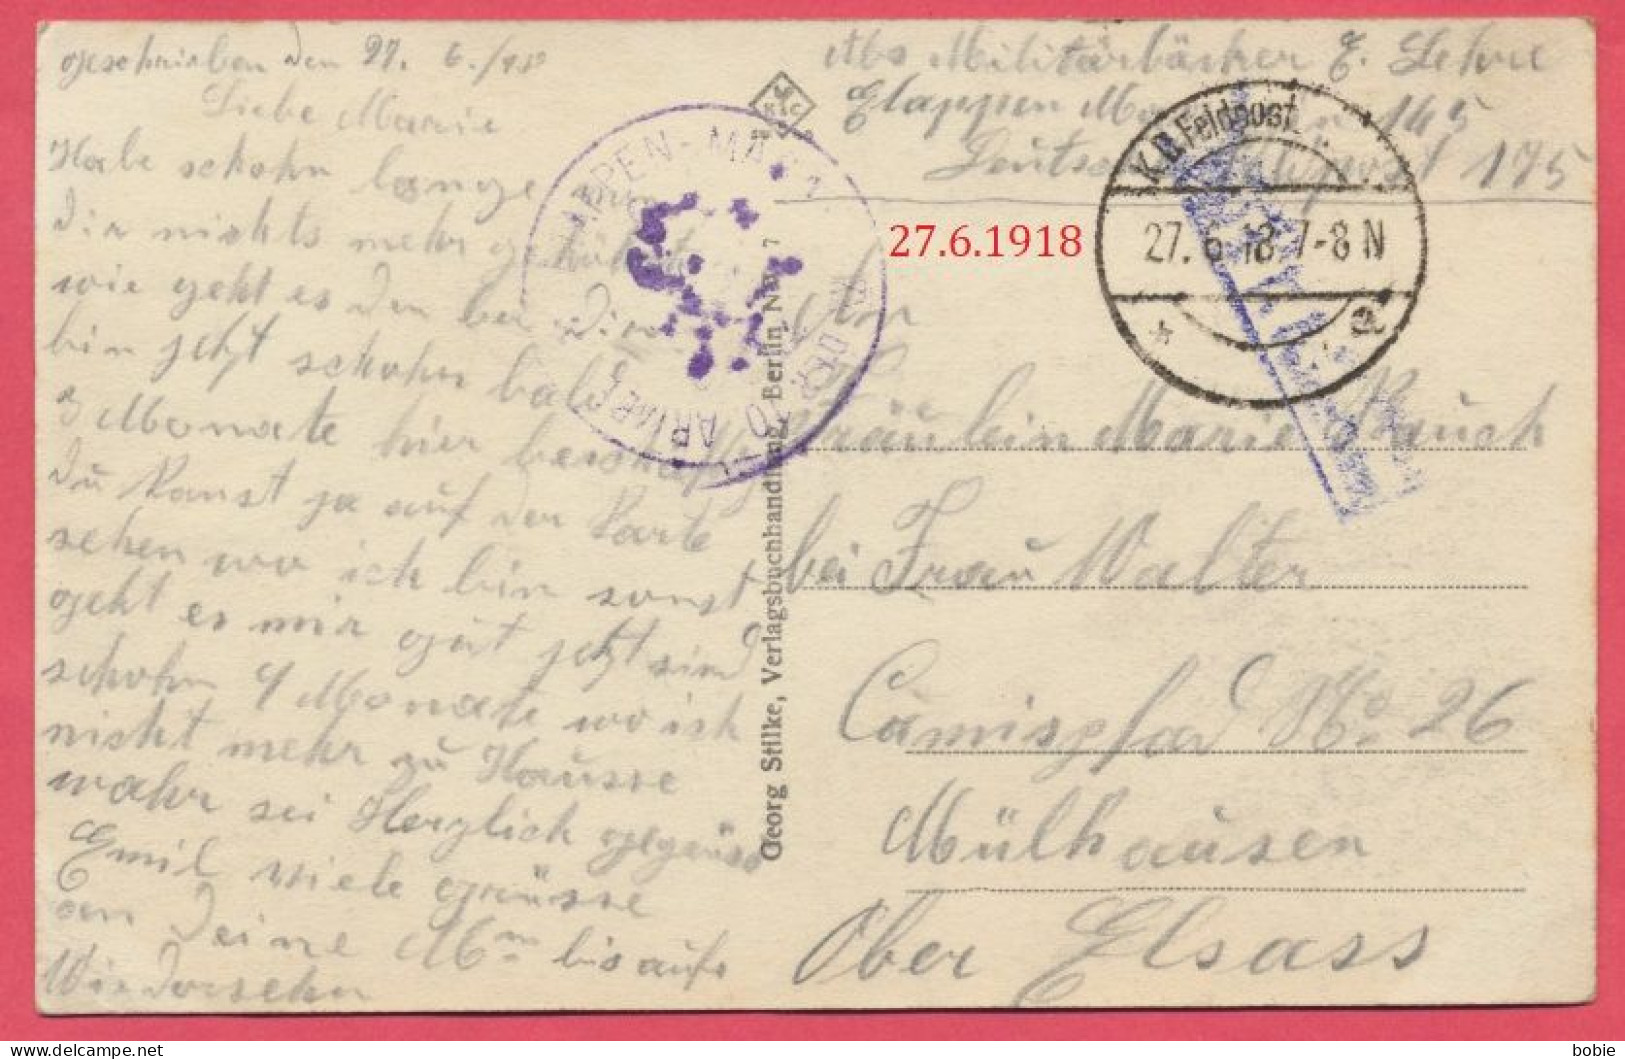 geschrieben den 27. 6./18
Liebe Marie
Habe schohn lange
Dir nichts mehr
wie geht es den bei Dir
bin jetzt schohn bald
3 Monate hier
Du kanst ja auf der Karte
sehen wo ich bin sonst
geht es mir gut jetzt sind
schohn 9 Monate wo ich
nicht mehr zu Hausse
wahr sei Herzlich gegrüsst
Emil viele grüsse
an Deine bis aufs
Wiedersehn
Abs Militärbäcker E.
Etappen 145
175
K.D. Feldpost
27. 6. 18 7-8 N
* a
27.6.1918
APPEN-MA
ARMEE
An
Fräulein Marie Rauch
bei Frau Walter
No 26
Mülhausen
Ober Elsass
Georg Stilke, Verlagsbuchhandlung, Berlin NW 7
bobie
delcampe.net